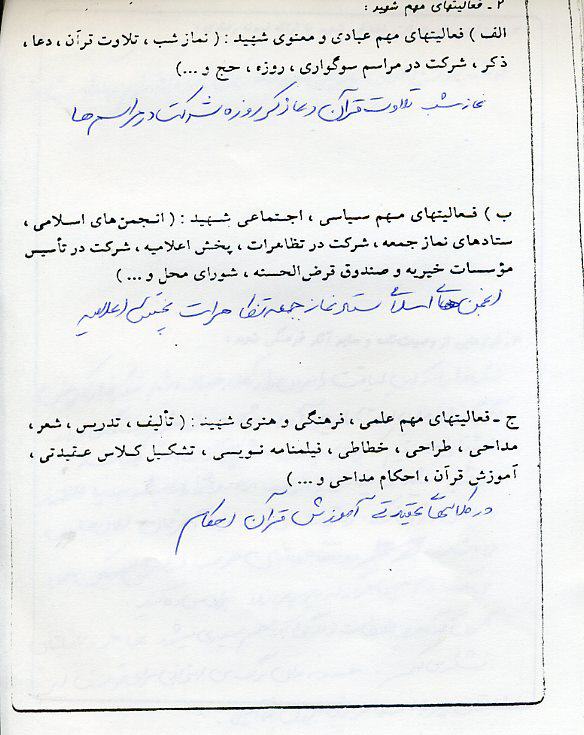 ۲ ـ فعالیتهای مهم شهید :
الف ) فعالیتهای مهم عبادی و معنوی شهید : ( نماز شب ، تلاوت قرآن ، دعا ،
ذکر ، شرکت در مراسم سوگواری ، روزه ، حج و ...)
نماز شب تلاوت قرآن دعا ذکر روزه شرکت در مراسم ها
ب ) فعالیتهای مهم سیاسی ، اجتماعی شهید : ( انجمن‌های اسلامی ،
ستادهای نماز جمعه ، شرکت در تظاهرات ، پخش اعلامیه ، شرکت در تأسیس
مؤسسات خیریه و صندوق قرض‌الحسنه ، شورای محل و ... )
انجمن های اسلامی ستاد نماز جمعه تظاهرات پخش اعلامیه
ج ـ فعالیتهای مهم علمی ، فرهنگی و هنری شهید : ( تألیف ، تدریس ، شعر ،
مداحی ، طراحی ، خطاطی ، فیلمنامه نویسی ، تشکیل کلاس عقیدتی ،
آموزش قرآن ، احکام مداحی و ... )
در کلاسهای عقیدتی آموزش قرآن احکام